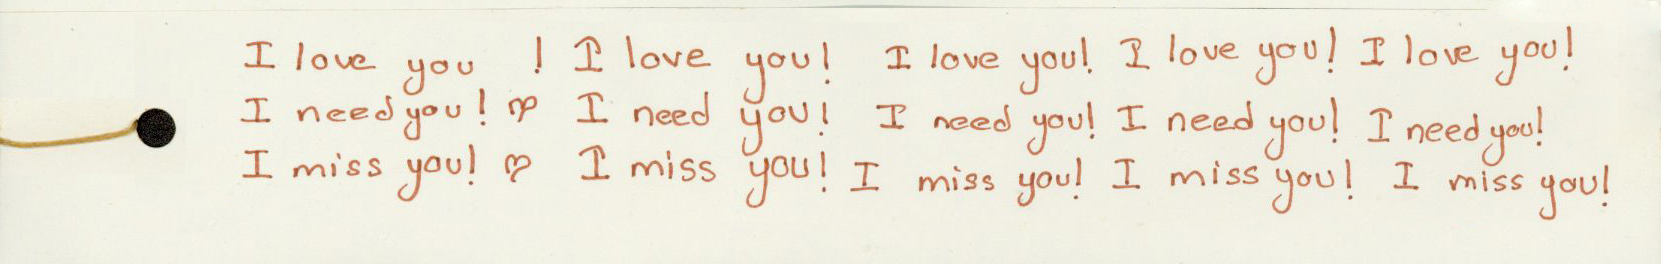 I love you ! I love you! I love you! I love you! I love you!
I need you! ♡ I need you! I need you! I need you! I need you!
I miss you! ♡ I miss you! I miss you! I miss you! I miss you!